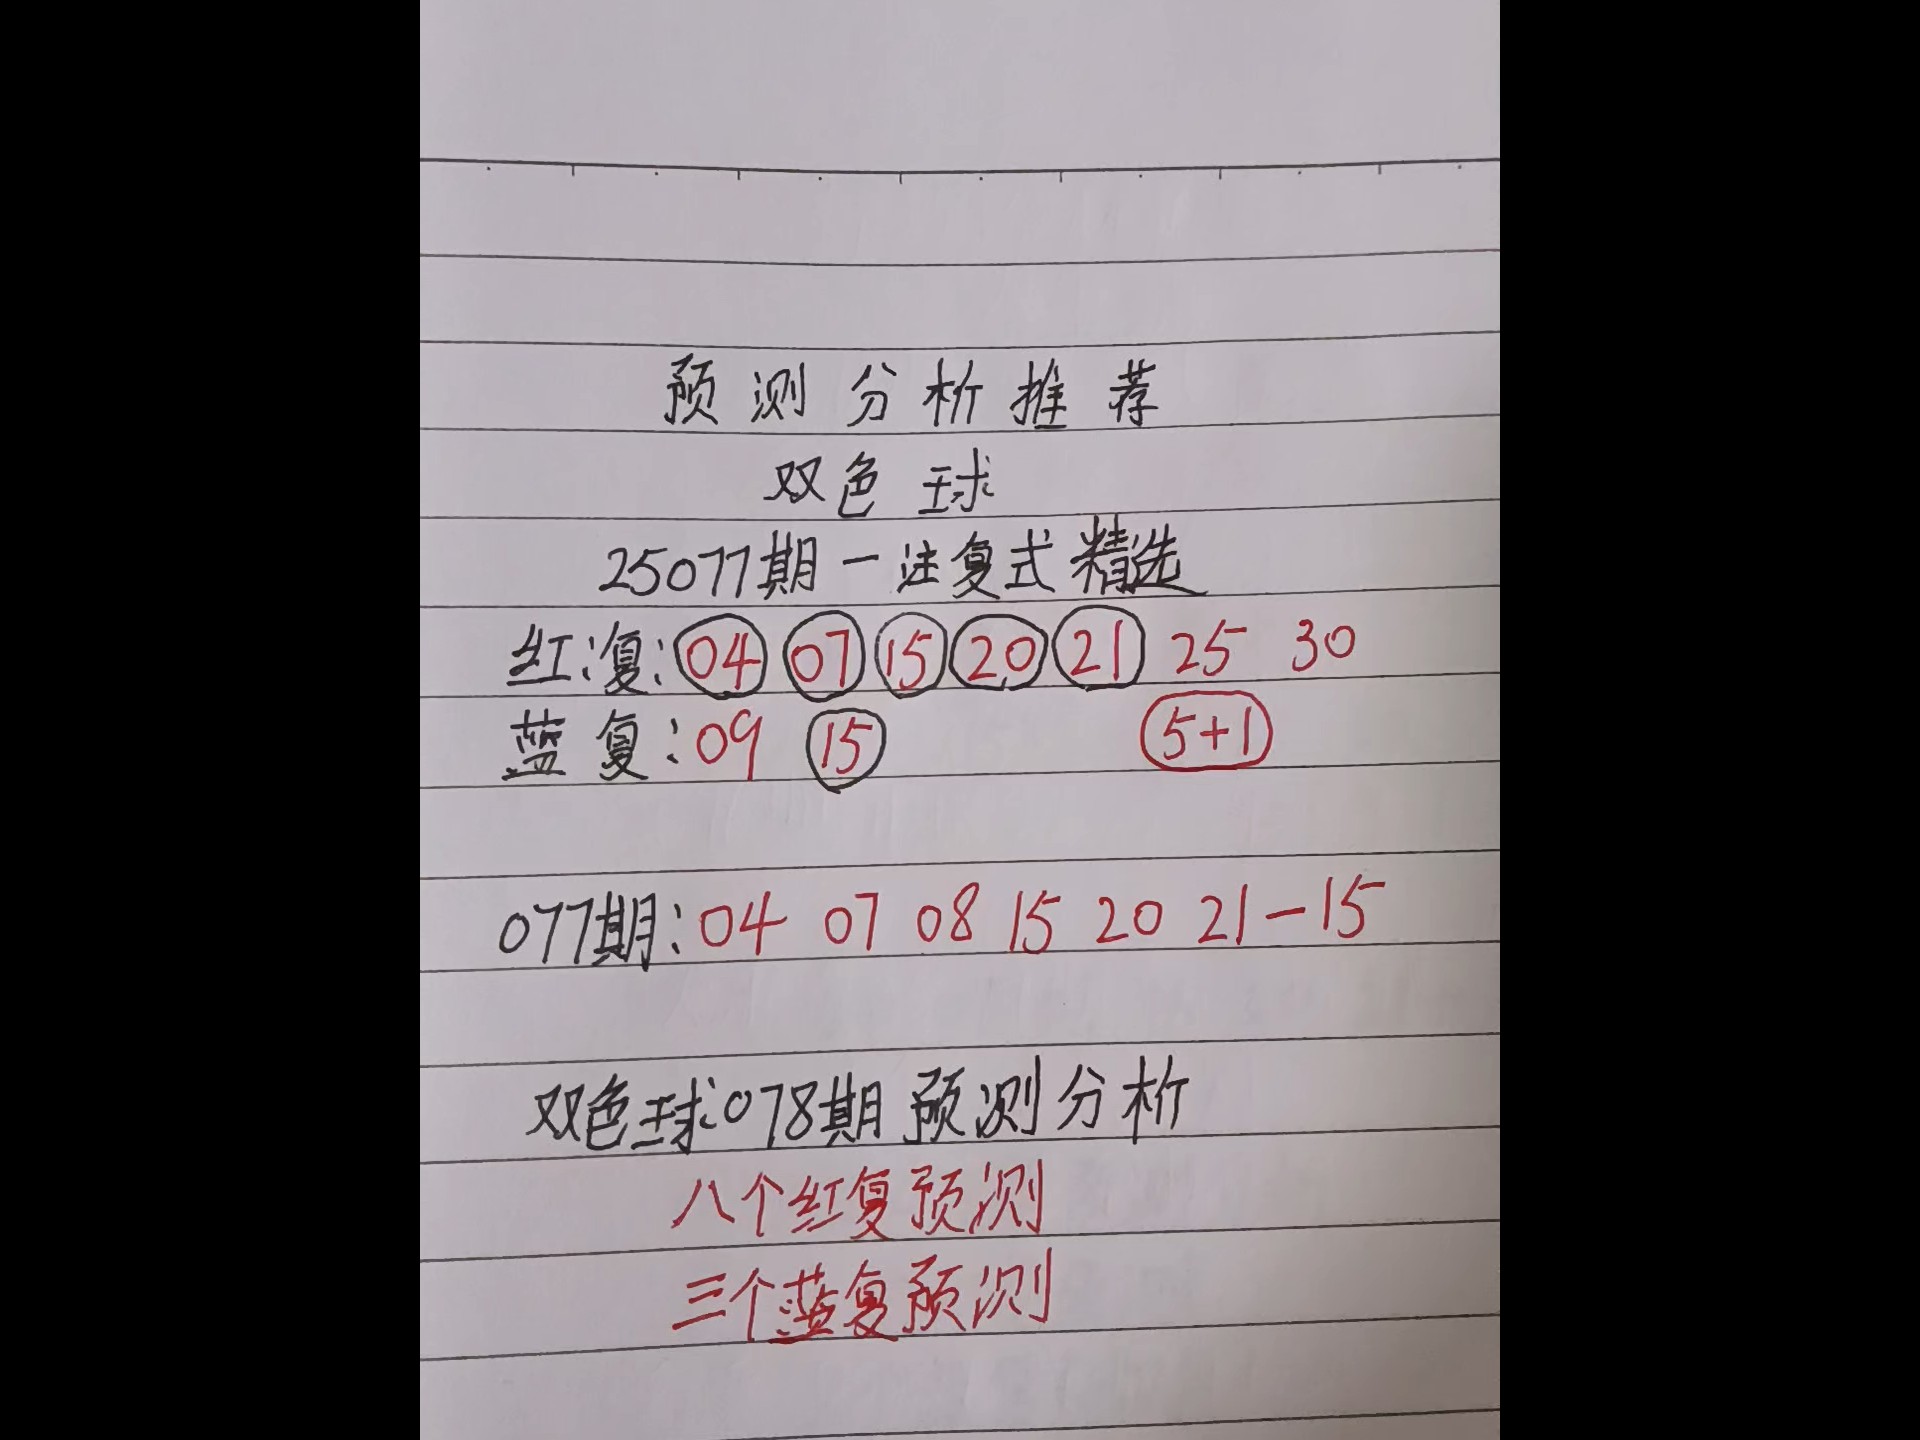 预测分析推荐
双色球
25077期一注复式精选
红复: 04 07 15 20 21 25 30
蓝复: 09 15 5+1
077期: 04 07 08 15 20 21-15
双色球078期预测分析
八个红复预测
三个蓝复预测